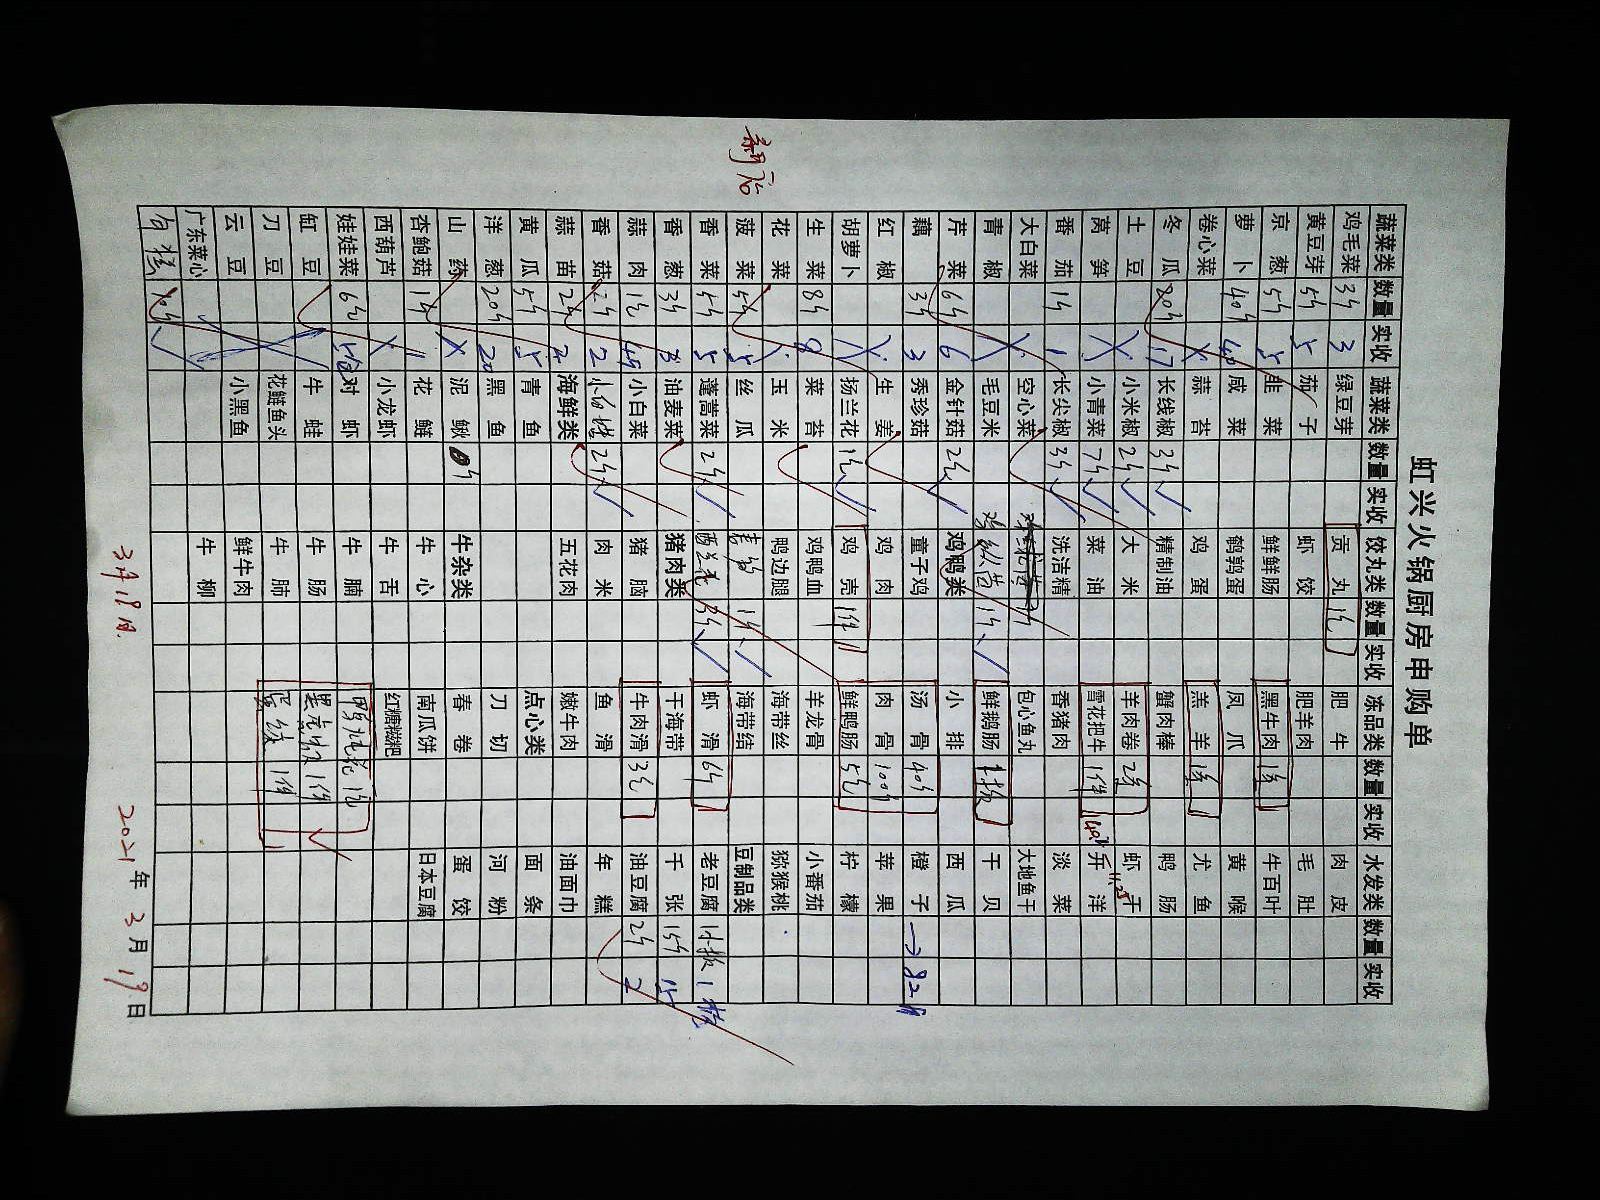 虹兴火锅厨房申购单
蔬菜类 数量 实收 蔬菜类 数量 实收 饺丸类 数量 实收 冻品类 数量 实收 水发类 数量 实收
鸡毛菜 3斤 3 绿豆芽 贡丸 1包 肥牛 肉皮
黄豆芽 5斤 5 茄子 虾饺 肥羊肉 毛肚
京葱 5斤 5 韭菜 鲜鲜肠 黑牛肉 1条 牛百叶
萝卜 40斤 40 咸菜 鹌鹑蛋 凤爪 黄喉
卷心菜 X 蒜苔 鸡蛋 羔羊 1条 尤鱼
冬瓜 20斤 17 长线椒 3斤 精制油 蟹肉棒 鸭肠
土豆 小米椒 2斤 大米 羊肉卷 2条 虾干
莴笋 X 小青菜 7斤 菜油 雪花把牛 1件 开洋
番茄 1斤 1 长尖椒 3斤 洗洁精 香猪肉 淡菜
大白菜 X 空心菜 包心鱼丸 大地鱼干
青椒 X 毛豆米 1斤 鲜鹅肠 1板 干贝
芹菜 6斤 6 金针菇 2包 鸡鸭类 小排 西瓜
藕 3斤 3 秀珍菇 童子鸡 汤骨 40斤 橙子 →82斤
红椒 生姜 鸡肉 肉骨 100斤 苹果
胡萝卜 X 扬兰花 1包 鸡壳 1件 鲜鸭肠 5包 柠檬
生菜 8斤 8 菜苔 鸡鸭血 羊龙骨 小番茄
花菜 X 玉米 鸭边腿 海带丝 猕猴桃
菠菜 5斤 5 丝瓜 1斤 海带结 豆制品类
香菜 5斤 5 蓬蒿菜 2斤 西兰花 3斤 虾滑 6斤 老豆腐 1小板 1板
香葱 3斤 3 油麦菜 猪肉类 干海带 千张 15斤 15
蒜肉 1包 小白菜 猪脑 牛肉滑 3包 油豆腐 2斤 2
香菇 2斤 2 2斤 肉米 鱼滑 年糕
蒜苗 2斤 2 海鲜类 五花肉 嫩牛肉 油面巾
黄瓜 5斤 5 青鱼 点心类 面条
洋葱 20斤 20 黑鱼 刀切 河粉
山药 X 泥鳅 牛杂类 春卷 蛋饺
杏鲍菇 1斤 1 花鲢 牛心 南瓜饼 日本豆腐
西葫芦 X 小龙虾 牛舌 红糖糍粑
娃娃菜 6包 对虾 牛腩 1包
豇豆 牛蛙 牛肠 1件
刀豆 花鲢鱼头 牛肺 1件
云豆 小黑鱼 鲜牛肉
广东菜心 牛柳
3月18日
2021年3月19日